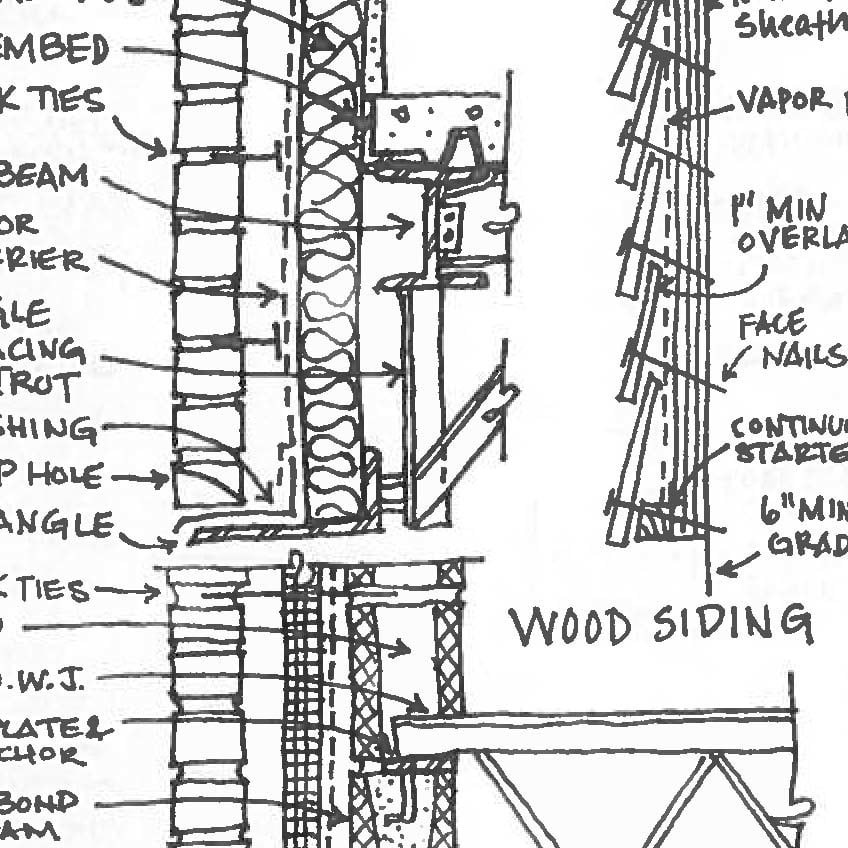 EMBED
K TIES
BEAM
OR
RIER
GLE
ACING
TRUT
SHING
P HOLE
ANGLE
K TIES
O.W.J.
PLATE &
CHOR
BOND
AM
Sheath
VAPOR
1" MIN
OVERLA
FACE
NAILS
CONTINU
STARTE
6" MIN
GRAD
WOOD SIDING